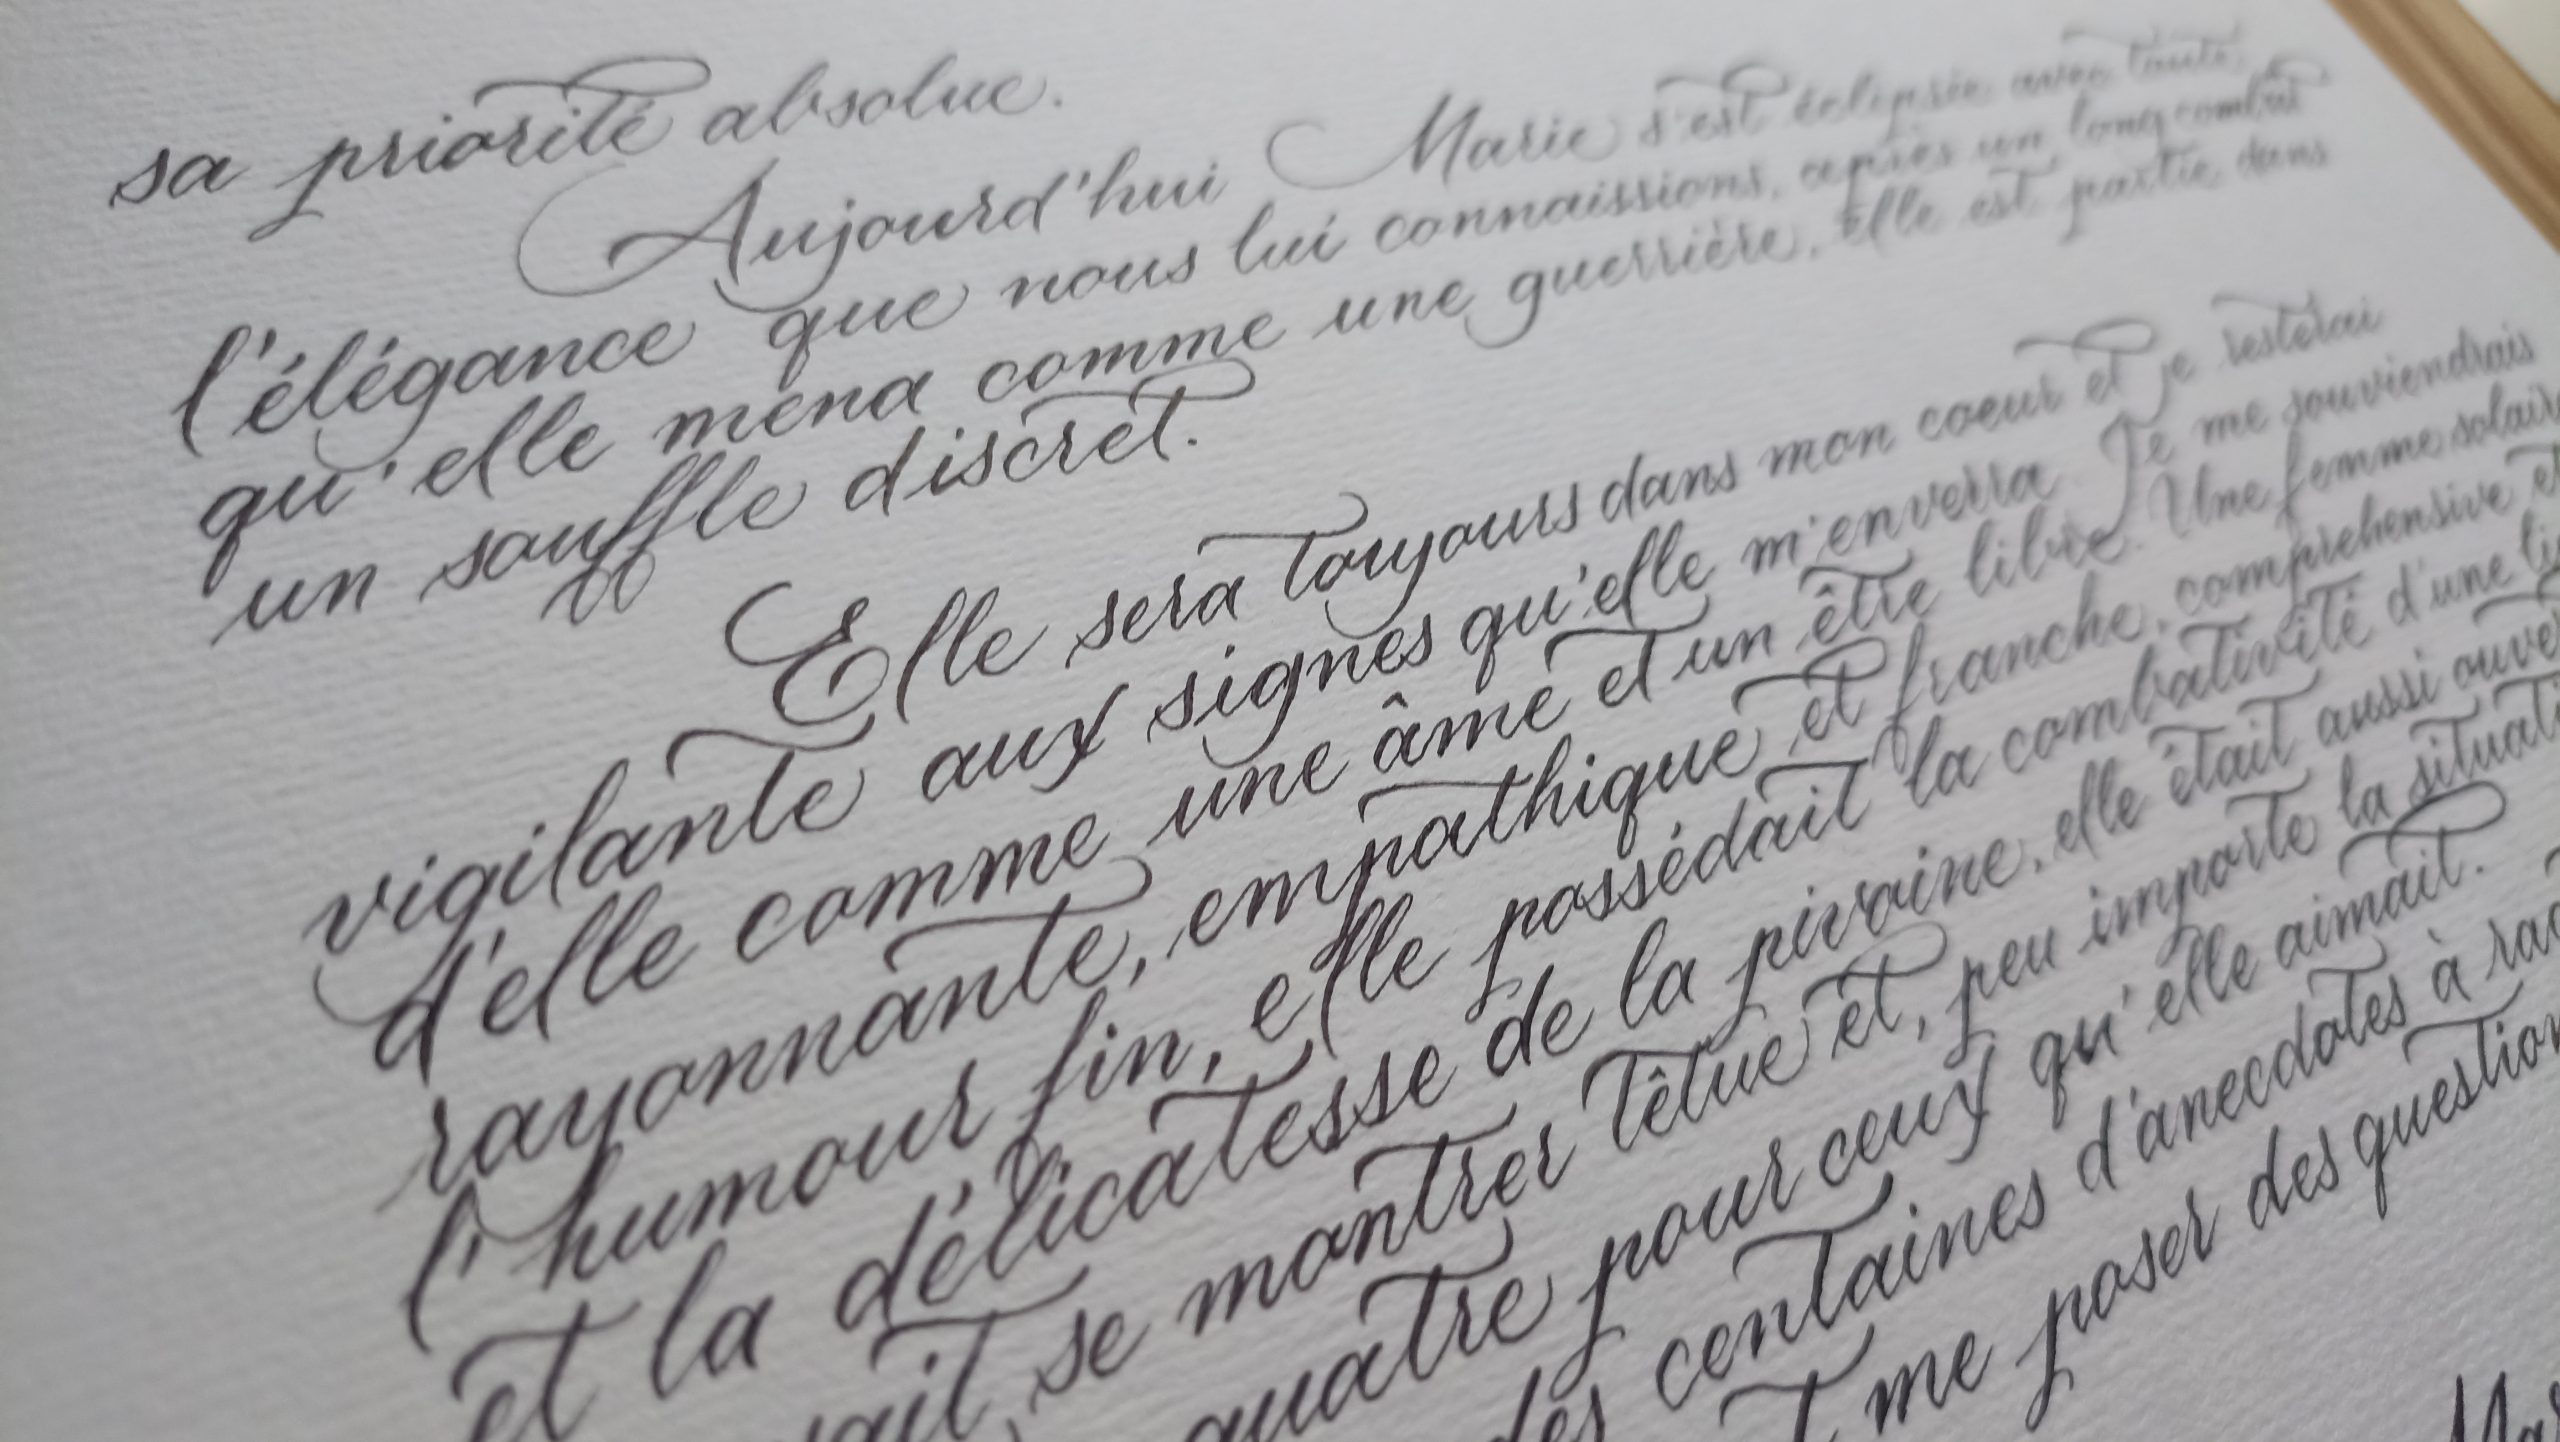 sa priorité absolue.
Aujourd'hui Marie s'est éclipsée avec toute
l'élégance que nous lui connaissions, après un long combat
qu'elle mena comme une guerrière, elle est partie dans
un souffle discret.
Elle sera toujours dans mon coeur et je resterai
vigilante aux signes qu'elle m'enverra. Je me souviendrais
d'elle comme une âme et un être libre. Une femme solaire
rayonnante, empathique et franche, comprehensive et
l'humour fin, elle possédait la combativité d'une
et la délicatesse de la pivoine, elle était aussi
se montrer têtue et, peu importe la
quatre pour ceux qu'elle aimait.
des centaines d'anecdotes à
me poser des